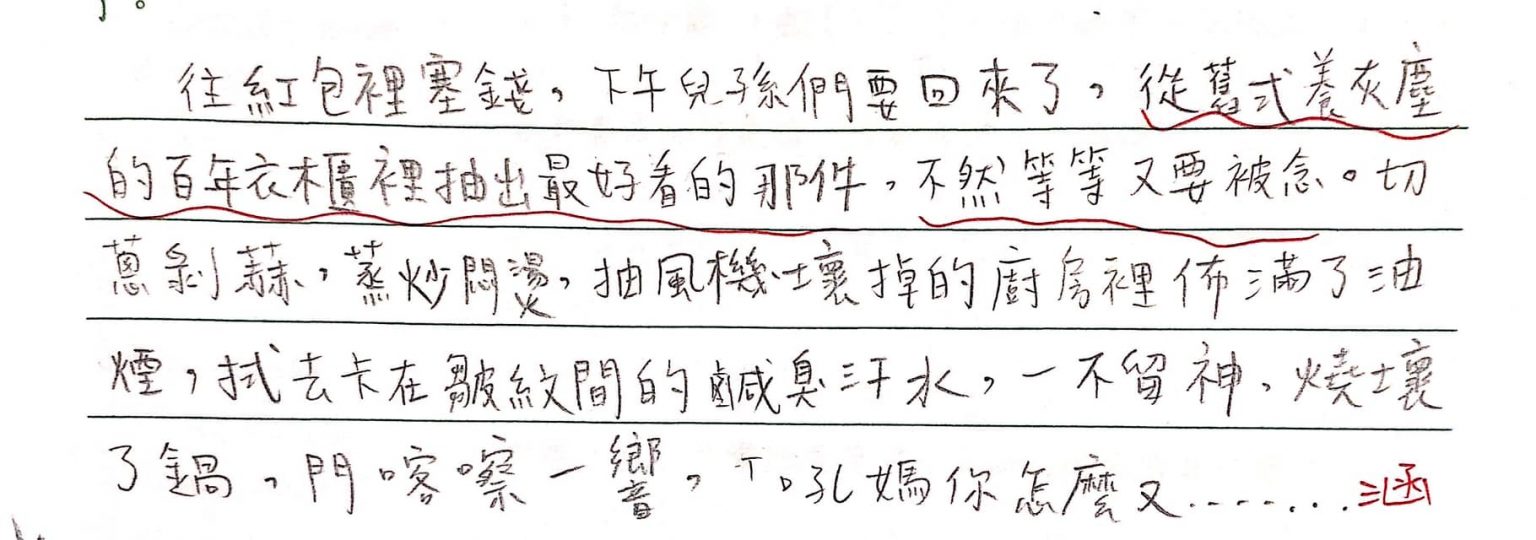 往紅包裡塞錢，下午兒孫們要回來了，從舊式養灰塵
的百年衣櫃裡抽出最好看的那件，不然等等又要被念。切
蔥剝蒜，蒸炒悶燙，抽風機壞掉的廚房裡佈滿了油
煙，拭去卡在皺紋間的鹹臭汗水，一不留神，燒壞
了鍋，門喀嚓一響，「吼媽你怎麼又……… 涵